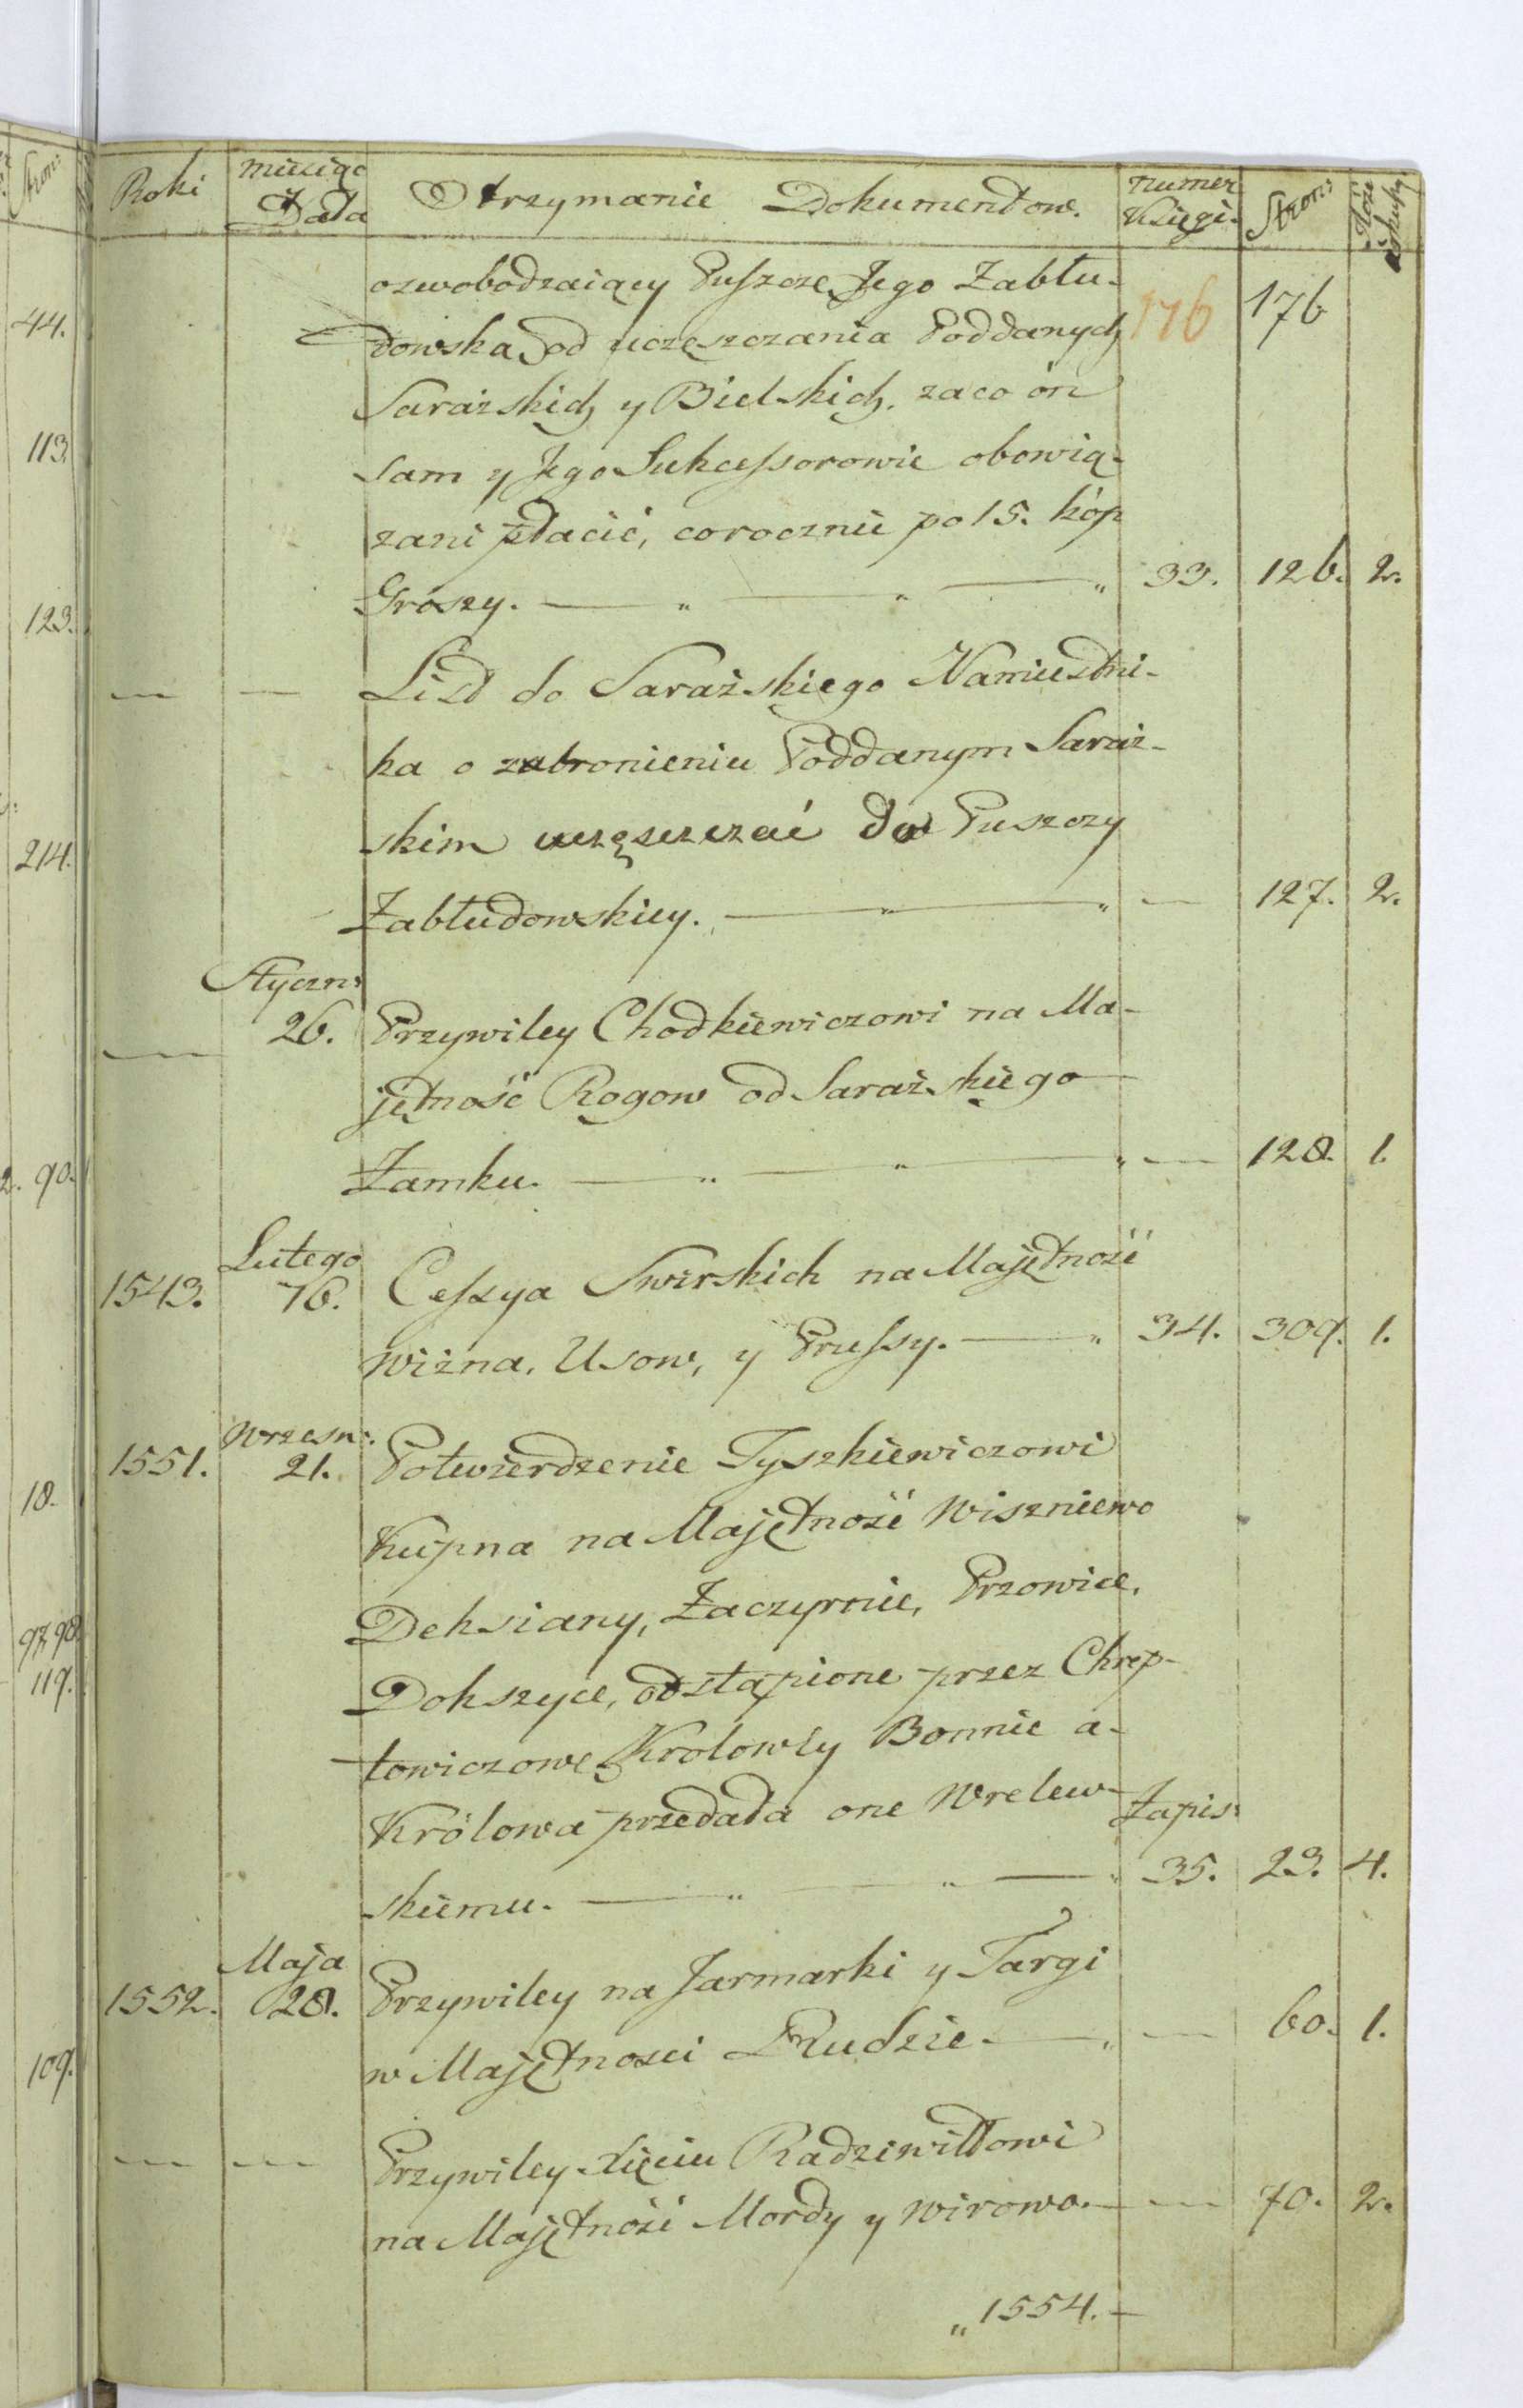 Stron:
44.
113.
123.
214.
2. 90.
18.
97,98
119.
109.
Roki Miesiąc Data Otrzymanie Dokumentow. numer Księgi. Stron:
176 176
oswobodzaiący Puszcze Jego Zabłu-
dowską od uczęszczania Poddanych
Sarazskich y Bielskich. zaco ón
sam y Jego Sukcessorowie obowią-
zani płacić, corocznie po 15. kóp
Groszy. — „ — „ — „ 33. 126. 2.
— — List do Sarażskiego Namiestni-
ka o zabronieniu Poddanym Saraż-
skim uczęszczać do Puszczy
Zabłudowskiey. — „ — „ — 127. 2.
Styczn:
— 26. Przywiley Chodkiewiczowi na Ma-
jętność Rogow od Sarażskiego
Zamku. — „ — „ — „ — 128. 1.
1543. Lutego 16. Cessya Swirskich na Majętność
Wizna, Usow, y Prussy. — „ 34. 309. 1.
1551. Wrzesn: 21. Potwierdzenie Tyszkiewiczowi
Kupna na Majętność Wiszniewo
Deksiany, Zaczyrnie, Przowice,
Dokszyce, odstąpione przez Chrep-
towiczowę Krolowey Bonnie a-
Królowa przedała one Wrelew-
Zapis:
skiemu. — „ — „ — „ 35. 23. 4.
1552. Maja 28. Przywiley na Jarmarki y Targi
w Majętnosci Rudzie. — „ — 60. 1.
— — Przywiley Xięciu Radziwiłłowi
na Majętność Mordy y Wirowo. — — 70. 2.
„ 1554. —